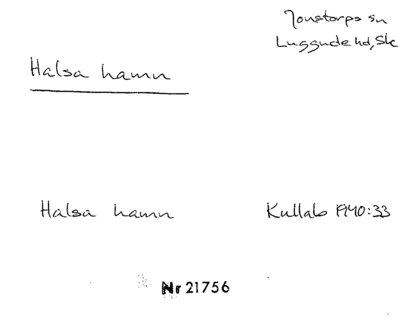 Jonstorps sn
Luggude hd, Sk
Halsa hamn
Halsa hamn Kullab 1940:33
Nr 21756